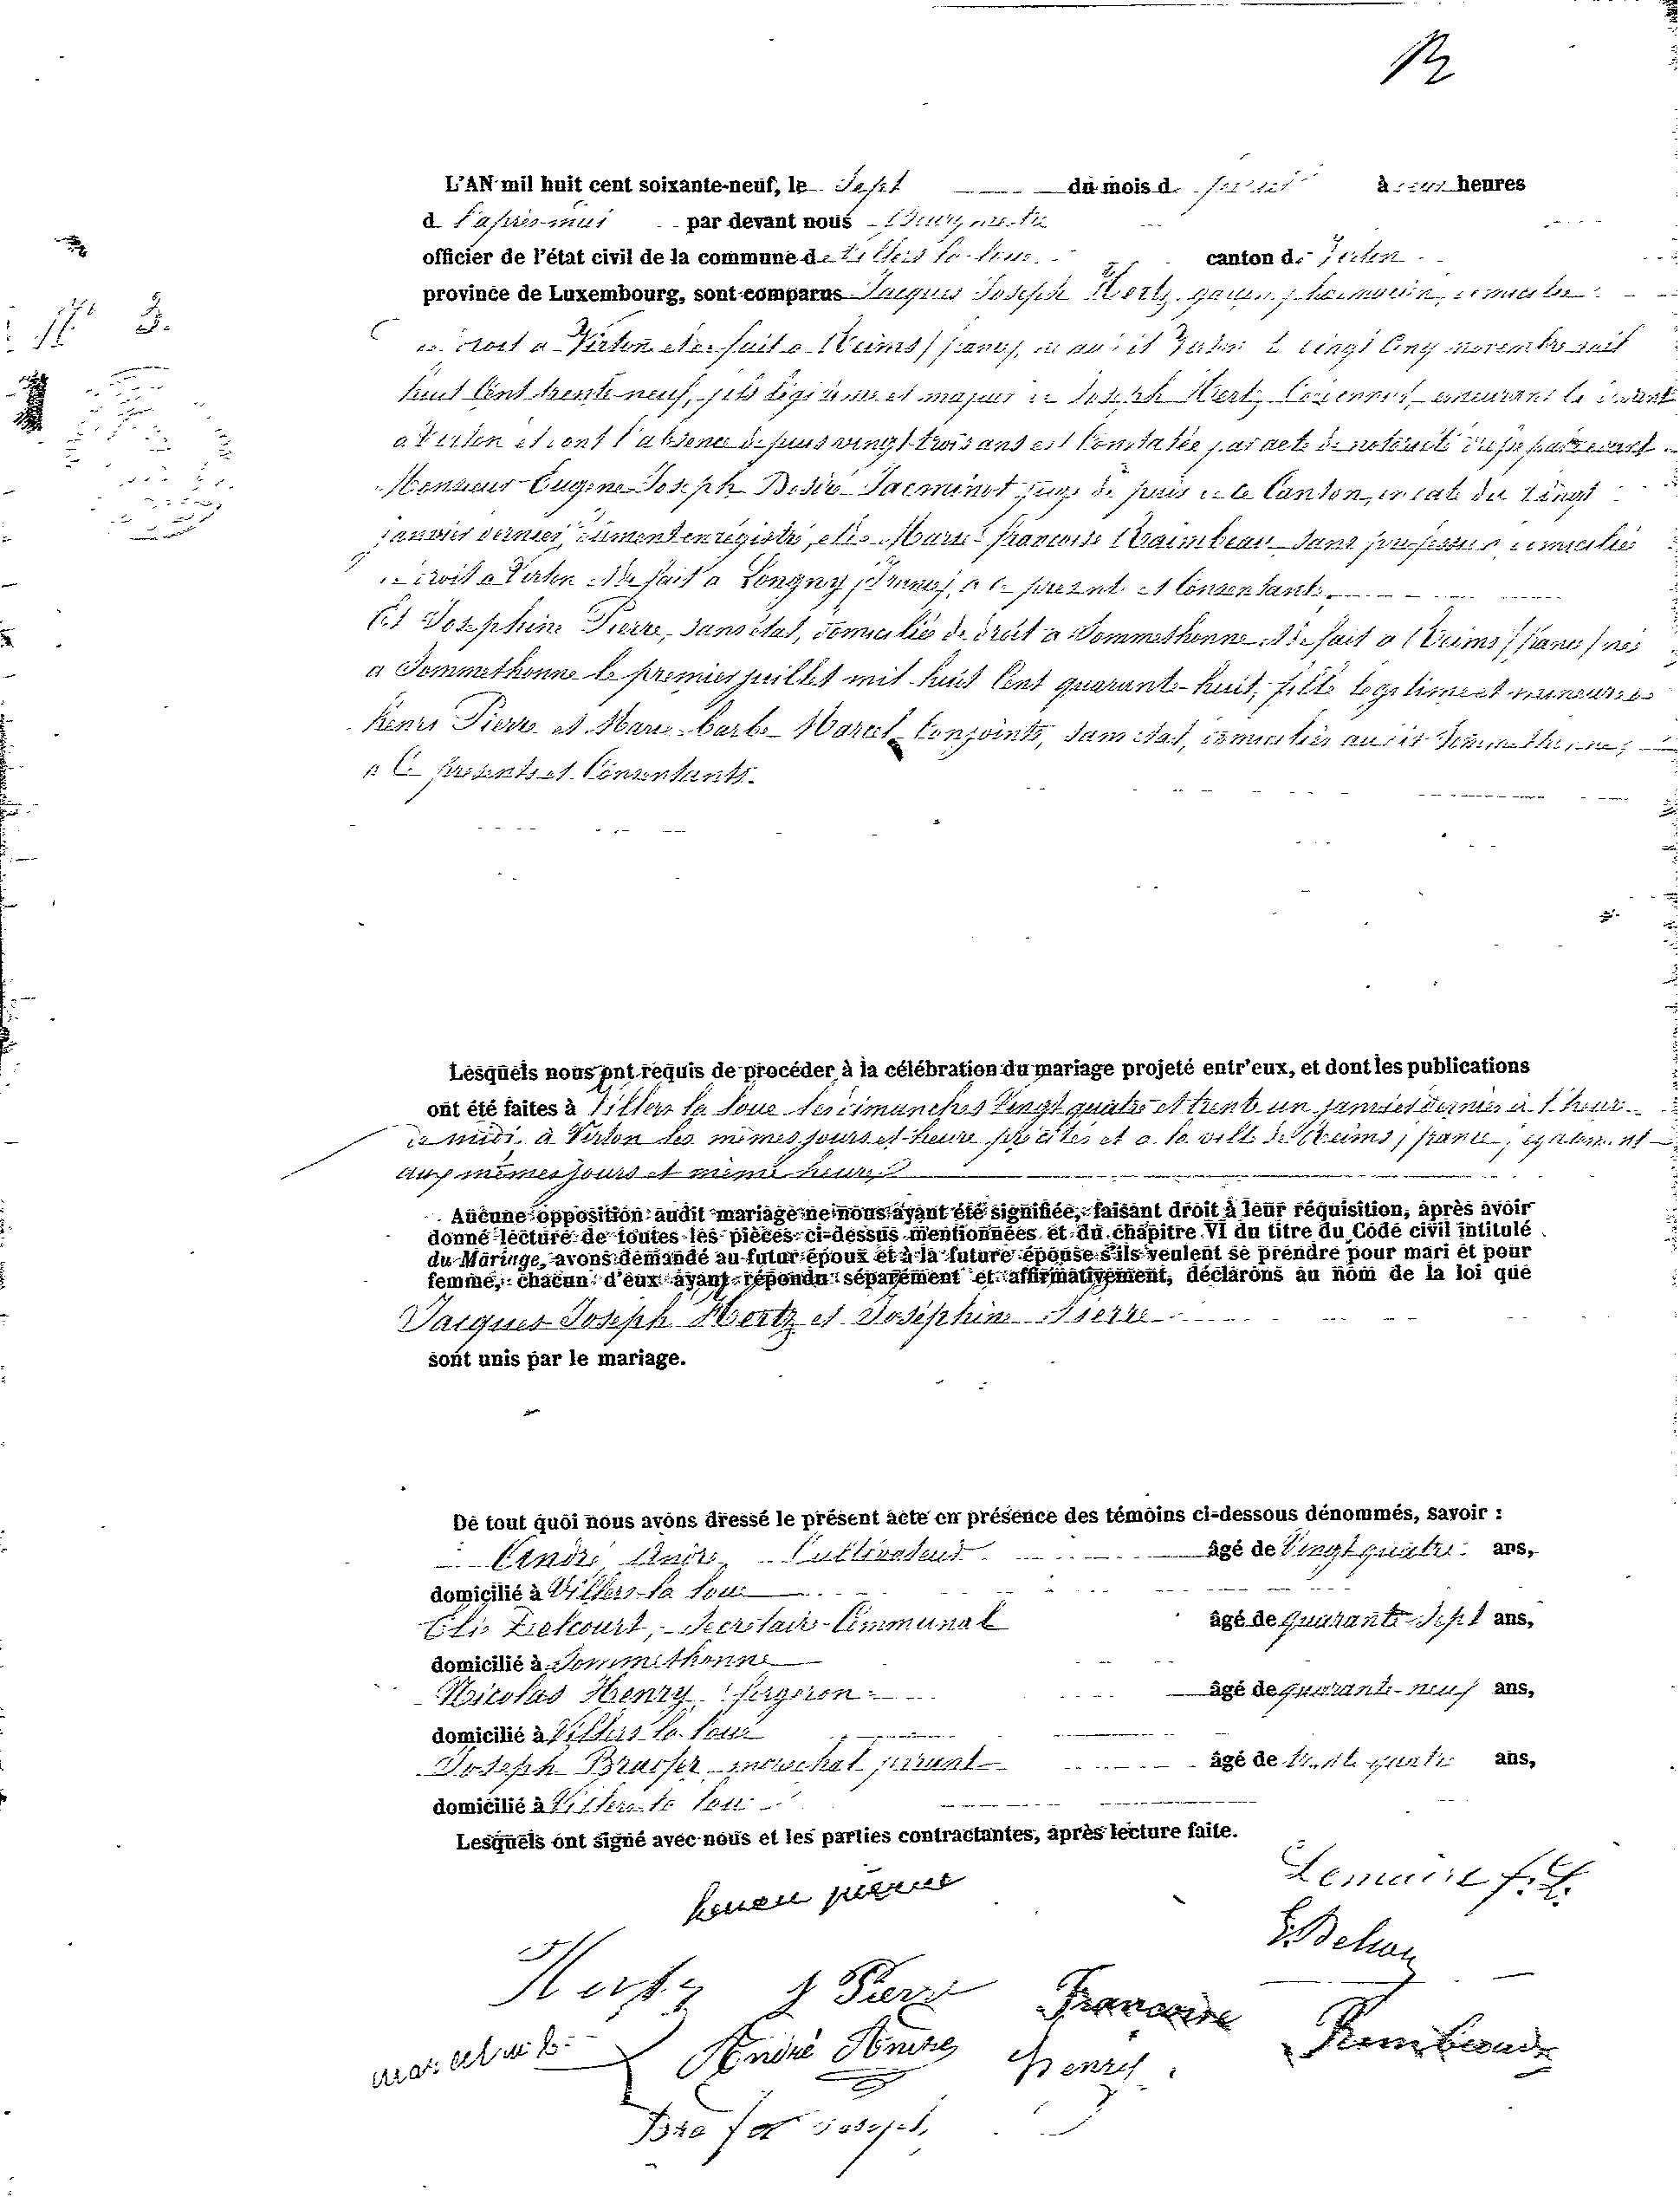 L'AN mil huit cent soixante-neuf, le Sept du mois d à heures
d l'après-midi par devant nous Bourgmestre
officier de l'état civil de la commune de Villers la Loue canton de Virton
province de Luxembourg, sont comparus Jacques Joseph Hertz garçon pharmacien, domicilié
N° 3.
de droit à Virton et de fait à Reims (france), né au dit Virton le vingt Cinq novembre mil
huit Cent trente-neuf, fils légitime et majeur de Joseph Hertz, demeurant
à Virton et dont l'absence depuis vingt-trois ans est Constatée par acte de notoriété
Monsieur Eugène Joseph Désiré Jacminot juge de paix de ce Canton, en date du Vingt
janvier dernier, dûment enregistré, et de Marie françoise Raimbeau sans profession domiciliée
de droit à Virton et de fait à Longwy (France), à ce présente et Consentante,
Et Joséphine Pierre, sans état, domiciliée de droit à Sommethonne et de fait à Reims (france) née
à Sommethonne le premier juillet mil huit Cent quarante-huit, fille légitime et mineure de
Henri Pierre et Marie Barbe Marcel Conjoints, sans état, domiciliés au dit Sommethonne,
à Ce présents et Consentants.
Lesquels nous ont requis de procéder à la célébration du mariage projeté entr'eux, et dont les publications
ont été faites à Villers la Loue les dimanches Vingt quatre et trente un janvier dernier à l'heure
de midi, à Virton les mêmes jours et heure précités et à la ville de Reims, france, également
aux mêmes jours et même heure
Aucune opposition audit mariage ne nous ayant été signifiée, faisant droit à leur réquisition, après avoir
donné lecture de toutes les pièces ci-dessus mentionnées et du chapitre VI du titre du Code civil intitulé
du Mariage, avons demandé au futur époux et à la future épouse s'ils veulent se prendre pour mari et pour
femme, chacun d'eux ayant répondu séparément et affirmativement, déclarons au nom de la loi que
Jacques Joseph Hertz et Joséphine Pierre
sont unis par le mariage.
De tout quoi nous avons dressé le présent acte en présence des témoins ci-dessous dénommés, savoir :
André André, Cultivateur âgé de Vingt quatre ans,
domicilié à Villers la Loue
Elie Delcourt, Secrétaire Communal âgé de quarante-Sept ans,
domicilié à Sommethonne
Nicolas Henry, forgeron âgé de quarante-neuf ans,
domicilié à Villers la Loue
Joseph maréchal ferrant âgé de trente quatre ans,
domicilié à Villers la Loue
Lesquels ont signé avec nous et les parties contractantes, après lecture faite.
Lemaire f. f.
pierre
Hertz J Pierre Francoise
André André Henry Raimbeaux
Joseph